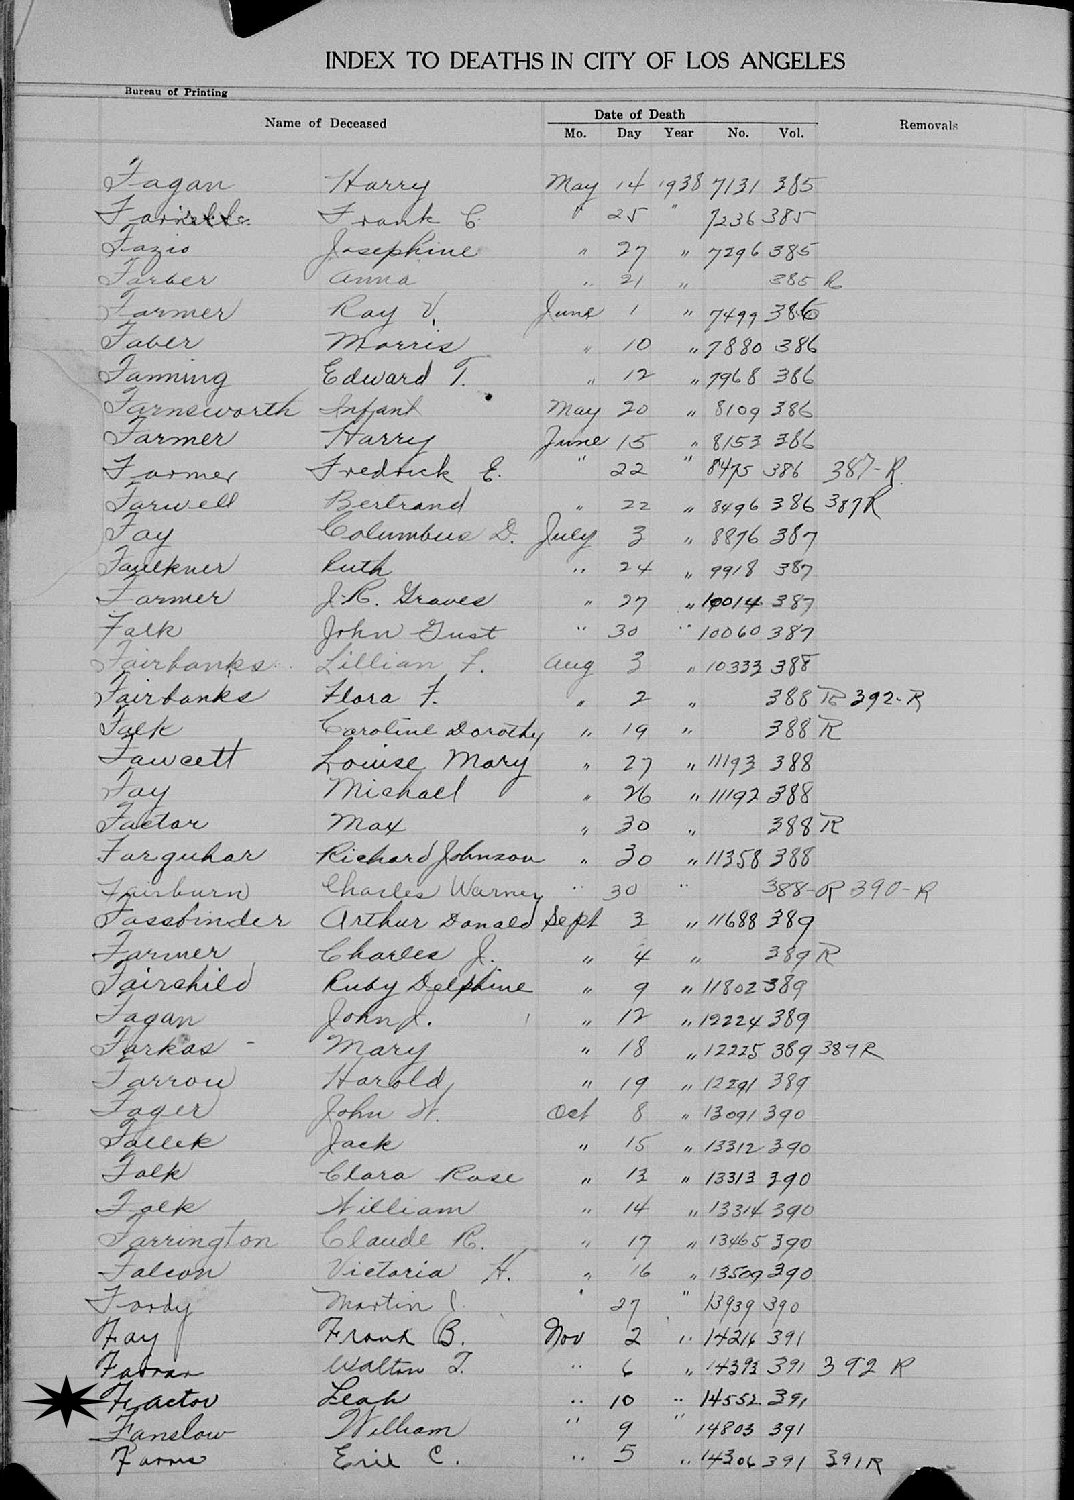 INDEX TO DEATHS IN CITY OF LOS ANGELES
Bureau of Printing
Name of Deceased Date of Death Removals
Mo. Day Year No. Vol.
Fagan Harry May 14 1938 7131 385
Frank C. " 25 " 7236 385
Fazio Josephine " 27 " 7296 385
Farber Anna " 21 " 385 R
Farmer Ray V. June 1 " 7499 386
Faber Morris " 10 " 7880 386
Fanning Edward T. " 12 " 7968 386
Farnsworth Infant May 20 " 8109 386
Farmer Harry June 15 " 8153 386
Farmer Fredrick E. " 22 " 8475 386 387-R.
Farwell Bertrand " 22 " 8496 386 387R
Fay Columbus D. July 3 " 8876 387
Faulkner Ruth " 24 " 9918 387
Farmer J.R. Graves " 27 " 10014 387
Falk John Gust " 30 " 10060 387
Fairbanks Lillian F. Aug 3 " 10333 388
Fairbanks Flora F. " 2 " 388 R 392-R
Falk Caroline Dorothy " 19 " 388 R
Fawcett Louise Mary " 27 " 11193 388
Fay Michael " 26 " 11192 388
Factor Max " 30 " 388 R
Farquhar Richard Johnson " 30 " 11358 388
Fairburn Charles Warney " 30 " 388-R 390-R
Fassbinder Arthur Donald Sept 3 " 11688 389
Farmer Charles J. " 4 " 389 R
Fairchild Ruby Delphine " 9 " 11802 389
Fagan John J. " 12 " 12224 389
Farkas - Mary " 18 " 12225 389 389R
Farrow Harold " 19 " 12291 389
Fager John W. Oct 8 " 13091 390
Fallek Jack " 15 " 13312 390
Falk Clara Rose " 13 " 13313 390
Falk William " 14 " 13314 390
Farrington Claude R. " 17 " 13465 390
Falcon Victoria H. " 16 " 13509 390
Fardy Martin " 27 " 13939 390
Fay Frank B. Nov 2 " 14216 391
Farrar Walton T. " 6 " 14393 391 392 R
Factor Leah " 10 " 14552 391
Fanslow William " 9 " 14803 391
Farns Eril C. " 5 " 14306 391 391R